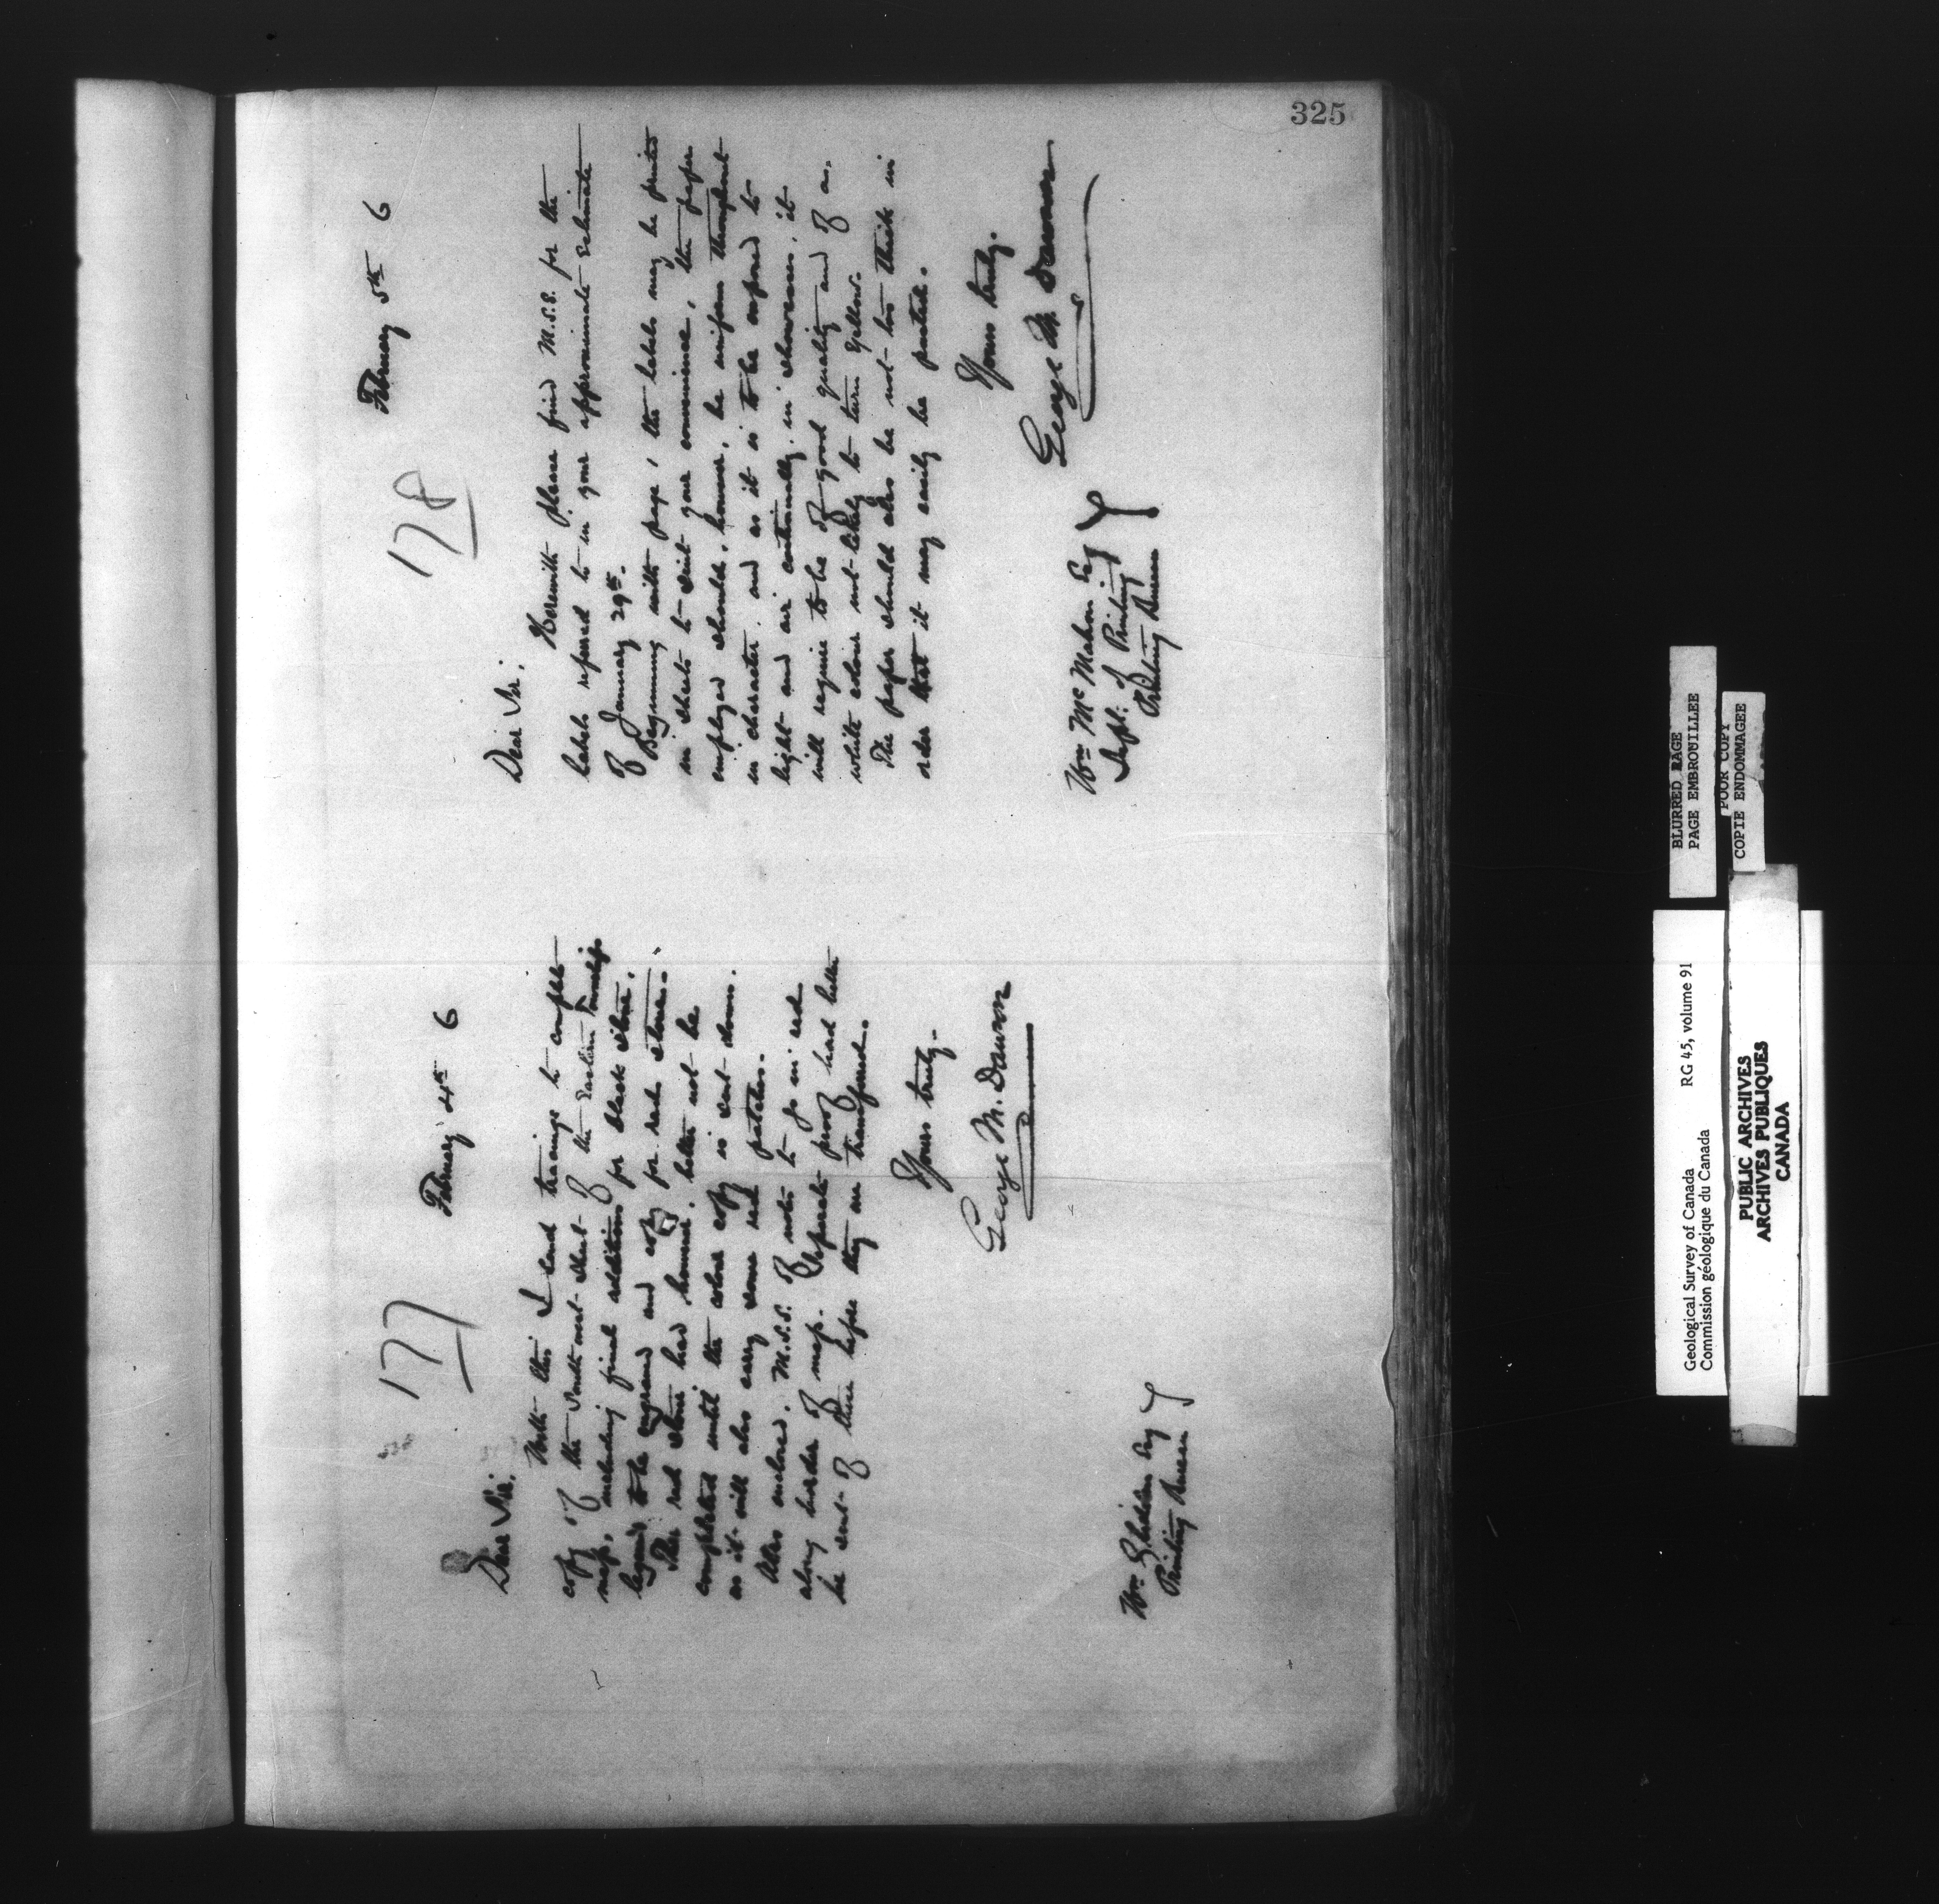 325
177
February 4th 6
Dear Sir.
With this I send tracings to complete
copy of the South west sheet of the Eastern Township
map, including final additions for black stone.
legend to be engraved and copy for red stone.
The red stone had however, better not be
completed until the colour copy is sent down.
as it will also carry some red patches.
Also enclosed. M.S.S. of notes to go in red
along border of map. Separate proof had better
be sent of these before they are transferred.
Yours truly.
George M. Dawson
Wm
Printing Bureau
178
February 5th 6
Dear Sir.
Herewith please find M.S.S. for the
labels referred to in your approximate Estimate
of January 29th.
Beginning with page, the labels may be printed
in sheets to suit your convenience, the paper
employed should, however, be uniform throughout
in character. and as it is to be exposed to
light and air continually, in showcases, it
will require to be of good quality and of a
white colour not likely to turn yellow.
The paper should also be not too thick in
order that it may easily be pasted.
Yours truly.
George M. Dawson
Wm McMahon Esq
Supt. of Printing
Printing Bureau
BLURRED PAGE
PAGE EMBROUILLEE
POOR COPY
COPIE ENDOMMAGEE
Geological Survey of Canada RG 45, volume 91
Commission géologique du Canada
PUBLIC ARCHIVES
ARCHIVES PUBLIQUES
CANADA